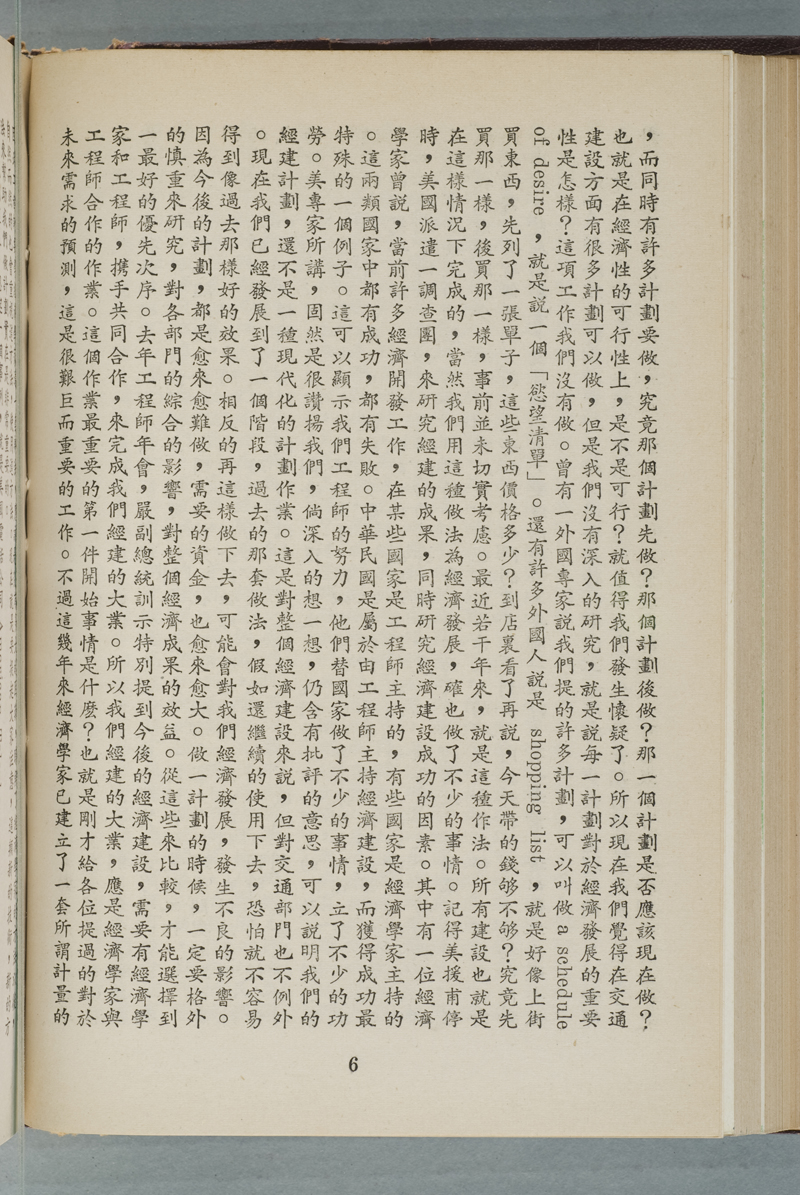 ，而同時有許多計劃要做，究竟那個計劃先做？那個計劃後做？那一個計劃是否應該現在做？
也就是在經濟性的可行性上，是不是可行？就值得我們發生懷疑了。所以現在我們覺得在交通
建設方面有很多計劃可以做，但是我們沒有深入的研究，就是說每一計劃對於經濟發展的重要
性是怎樣？這項工作我們沒有做。曾有一外國專家說我們提的許多計劃，可以叫做 a schedule
of desire，就是說一個「慾望清單」。還有許多外國人說是 shopping list，就是好像上街
買東西，先列了一張單子，這些東西價格多少？到店裏看了再說，今天帶的錢够不够？究竟先
買那一樣，後買那一樣，事前並未切實考慮。最近若干年來，就是這種作法。所有建設也就是
在這樣情況下完成的，當然我們用這種做法為經濟發展，確也做了不少的事情。記得美援甫停
時，美國派遣一調查團，來研究經建的成果，同時研究經濟建設成功的因素。其中有一位經濟
學家曾說，當前許多經濟開發工作，在某些國家是工程師主持的，有些國家是經濟學家主持的
。這兩類國家中都有成功，都有失敗。中華民國是屬於由工程師主持經濟建設，而獲得成功最
特殊的一個例子。這可以顯示我們工程師的努力，他們替國家做了不少的事情，立了不少的功
勞。美專家所講，固然是很讚揚我們，倘深入的想一想，仍含有批評的意思，可以說明我們的
經建計劃，還不是一種現代化的計劃作業。這是對整個經濟建設來說，但對交通部門也不例外
。現在我們已經發展到了一個階段，過去的那套做法，假如還繼續的使用下去，恐怕就不容易
得到像過去那樣好的效果。相反的再這樣做下去，可能會對我們經濟發展，發生不良的影響。
因為今後的計劃，都是愈來愈難做，需要的資金，也愈來愈大。做一計劃的時候，一定要格外
的慎重來研究，對各部門的綜合的影響，對整個經濟成果的效益。從這些來比較，才能選擇到
一最好的優先次序。去年工程師年會，嚴副總統訓示特別提到今後的經濟建設，需要有經濟學
家和工程師，携手共同合作，來完成我們經建的大業。所以我們經建的大業，應是經濟學家與
工程師合作的作業。這個作業最重要的第一件開始事情是什麽？也就是剛才給各位提過的對於
未來需求的預測，這是很艱巨而重要的工作。不過這幾年來經濟學家已建立了一套所謂計量的
6